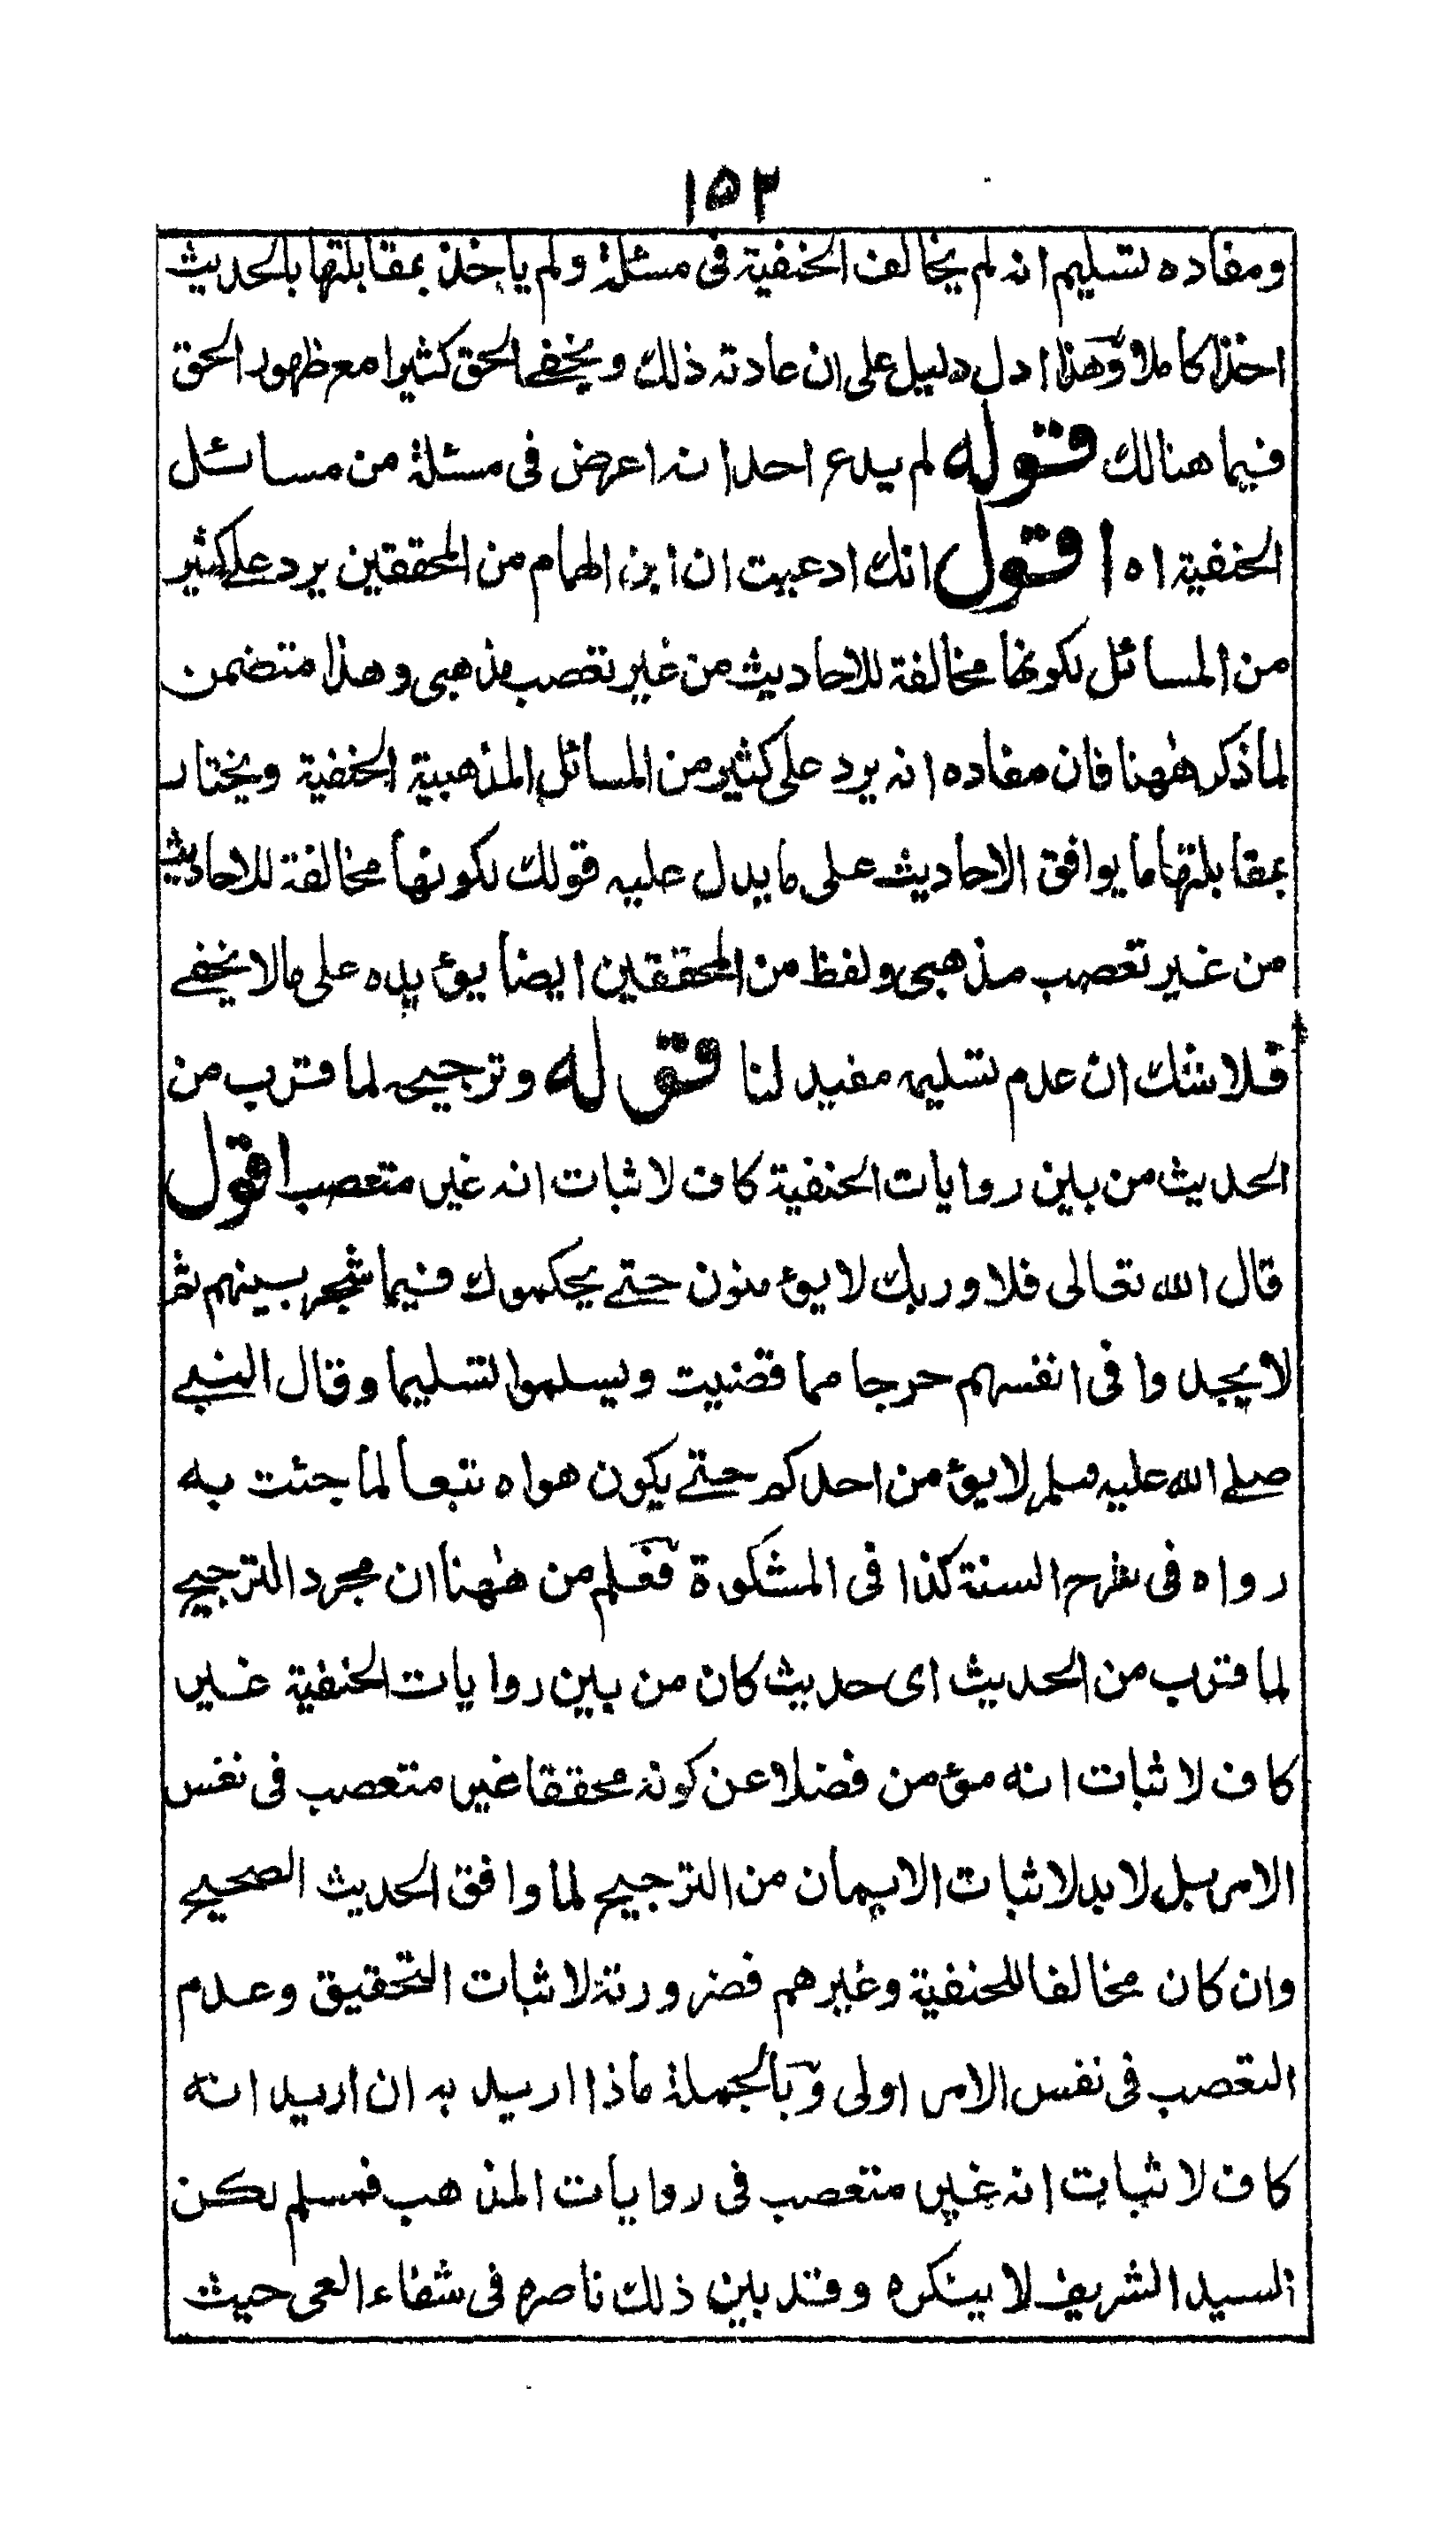 ١٥٢
ومفاده تسليم انه لم يخالف الحنفية فى مسئلة ولم ياخذ بمقابلتها بالحديث
اخذا كاملا وهذا ادل دليل على ان عادته ذلك ويخفے الحق كثيرا مع ظهور الحق
فيما هنالك قوله لم يدع احد انه اعرض فى مسئلة من مسائل
الحنفية اه اقول انك ادعيت ان ابن الهمام من المحققين يرد علے كثير
من المسائل لكونها مخالفة للاحاديث من غير تعصب مذهبى وهذا متضمن
لما ذكر ههنا فان مفاده انه يرد على كثير من المسائل المذهبية الحنفية ويختار
بمقابلتها ما يوافق الاحاديث على ما يدل عليه قولك لكونها مخالفة للاحاديث
من غير تعصب مذهبى ولفظ من المحققين ايضا يؤيده على مالا يخفے
فلا شك ان عدم تسليمه مفيد لنا قوله وترجيحه لما قرب من
الحديث من بين روايات الحنفية كاف لاثبات انه غير متعصب اقول
قال الله تعالى فلا وربك لا يؤمنون حتے يحكموك فيما شجر بينهم ثم
لا يجدوا فى انفسهم حرجا مما قضيت ويسلموا تسليما وقال النبے
صلے الله عليه وسلم لا يؤمن احدكم حتے يكون هواه تبعا لما جئت به
رواه فى شرح السنة كذا فى المشكوة فعلم من ههنا ان مجرد الترجيح
لما قرب من الحديث اى حديث كان من بين روايات الحنفية غير
كاف لاثبات انه مؤمن فضلا عن كونه محققا غير متعصب فى نفس
الامر بل لا بد لاثبات الايمان من الترجيح لما وافق الحديث الصحيح
وان كان مخالفا للحنفية وغيرهم فضرورته لاثبات التحقيق وعدم
التعصب فى نفس الامر اولى وبالجملة ماذا اريد به ان اريد انه
كاف لاثبات انه غير متعصب فى روايات المذهب فمسلم لكن
السيد الشريف لا ينكره وقد بين ذلك ناصره فى شفاء العى حيث